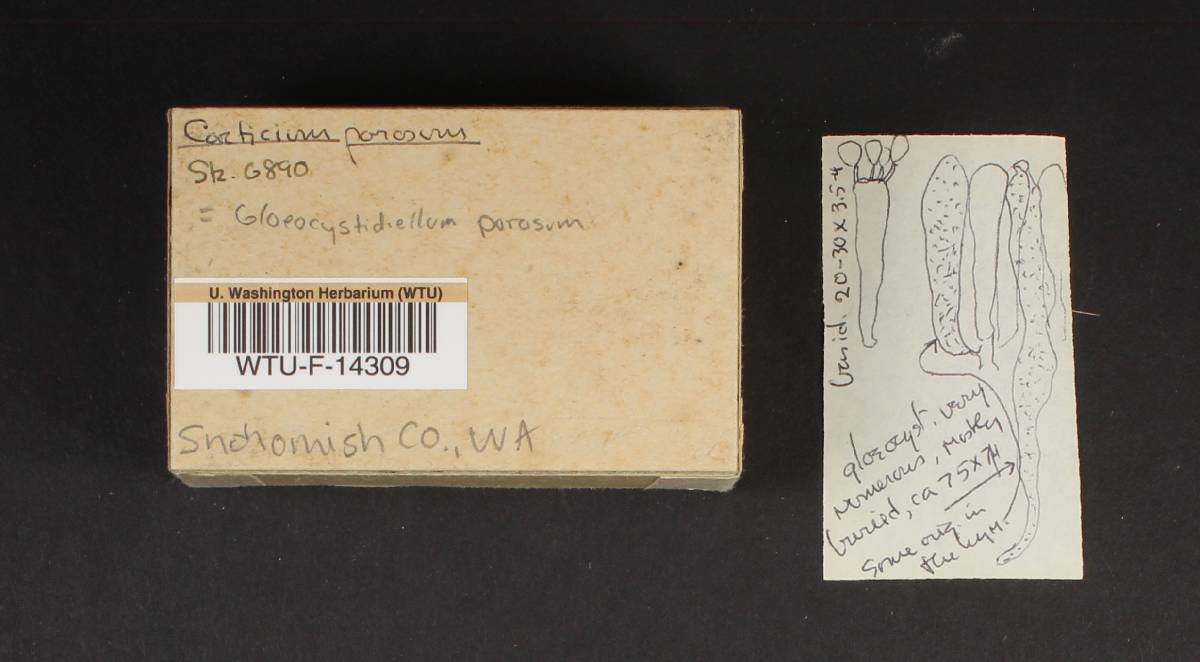 Corticium porosum
Sk. 6890
= Gloeocystidiellum porosum
U. Washington Herbarium (WTU)
WTU-F-14309
Snohomish Co., WA
basid. 20-30 x 3.5-4
gloeocyst. very
numerous, mostly
buried, ca 75 x 7µ
some orig. in
the hym.